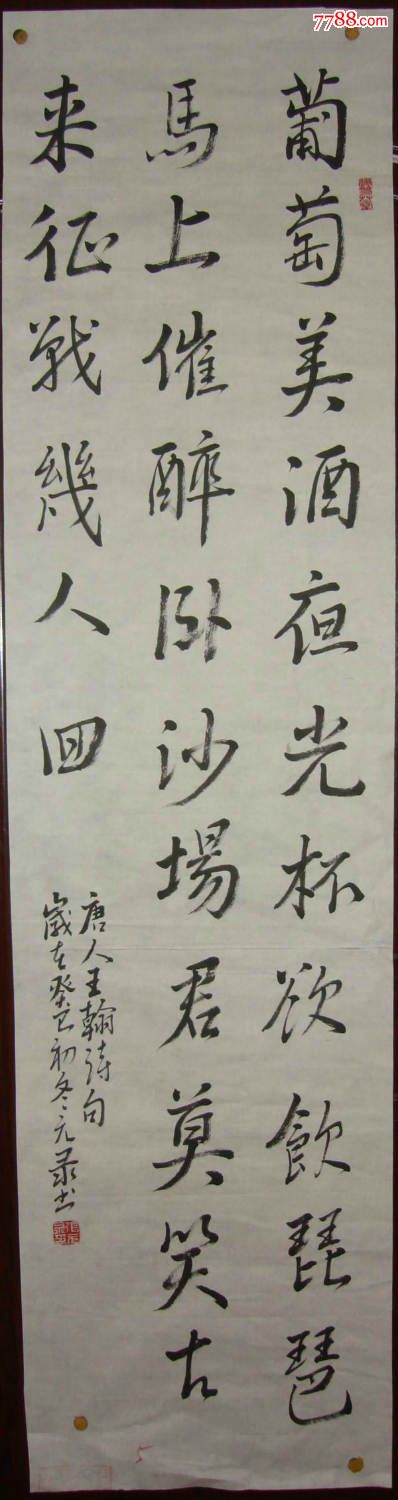 葡萄美酒夜光杯欲飲琵琶
馬上催醉卧沙場君莫笑古
来征戰幾人回
唐人王翰詩句
歲在癸巳初冬元录书
7788.com